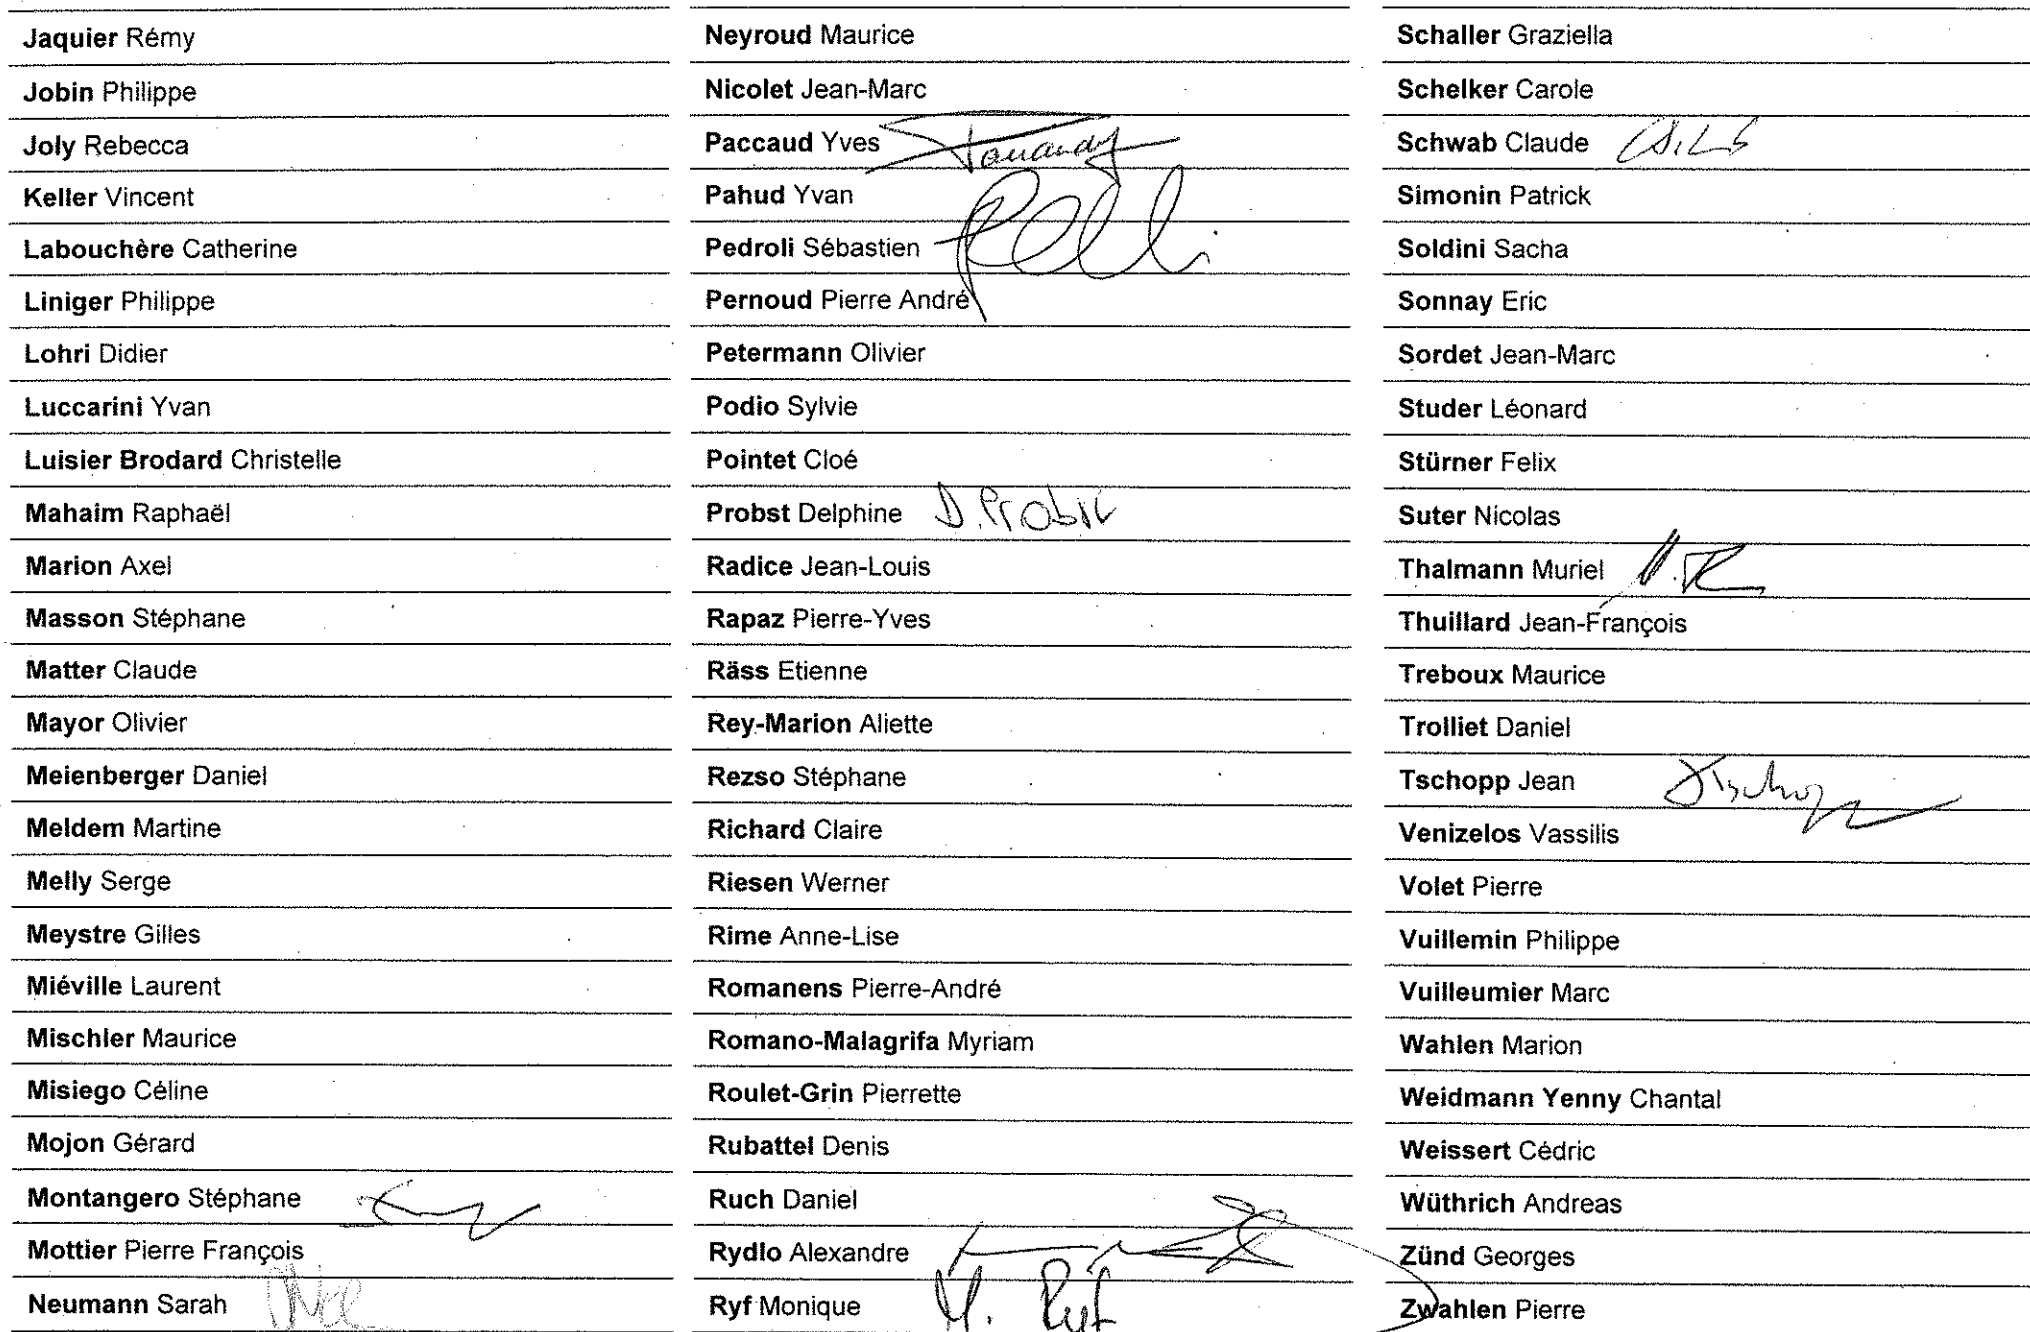 Jaquier Rémy
Jobin Philippe
Joly Rebecca
Keller Vincent
Labouchère Catherine
Liniger Philippe
Lohri Didier
Luccarini Yvan
Luisier Brodard Christelle
Mahaim Raphaël
Marion Axel
Masson Stéphane
Matter Claude
Mayor Olivier
Meienberger Daniel
Meldem Martine
Melly Serge
Meystre Gilles
Miéville Laurent
Mischler Maurice
Misiego Céline
Mojon Gérard
Montangero Stéphane
Mottier Pierre François
Neumann Sarah
Neyroud Maurice
Nicolet Jean-Marc
Paccaud Yves
Pahud Yvan
Pedroli Sébastien
Pernoud Pierre André
Petermann Olivier
Podio Sylvie
Pointet Cloé
Probst Delphine D. Probst
Radice Jean-Louis
Rapaz Pierre-Yves
Räss Etienne
Rey-Marion Aliette
Rezso Stéphane
Richard Claire
Riesen Werner
Rime Anne-Lise
Romanens Pierre-André
Romano-Malagrifa Myriam
Roulet-Grin Pierrette
Rubattel Denis
Ruch Daniel
Rydlo Alexandre
Ryf Monique M. Ryf
Schaller Graziella
Schelker Carole
Schwab Claude
Simonin Patrick
Soldini Sacha
Sonnay Eric
Sordet Jean-Marc
Studer Léonard
Stürner Felix
Suter Nicolas
Thalmann Muriel
Thuillard Jean-François
Treboux Maurice
Trolliet Daniel
Tschopp Jean JTschopp
Venizelos Vassilis
Volet Pierre
Vuillemin Philippe
Vuilleumier Marc
Wahlen Marion
Weidmann Yenny Chantal
Weissert Cédric
Wüthrich Andreas
Zünd Georges
Zwahlen Pierre